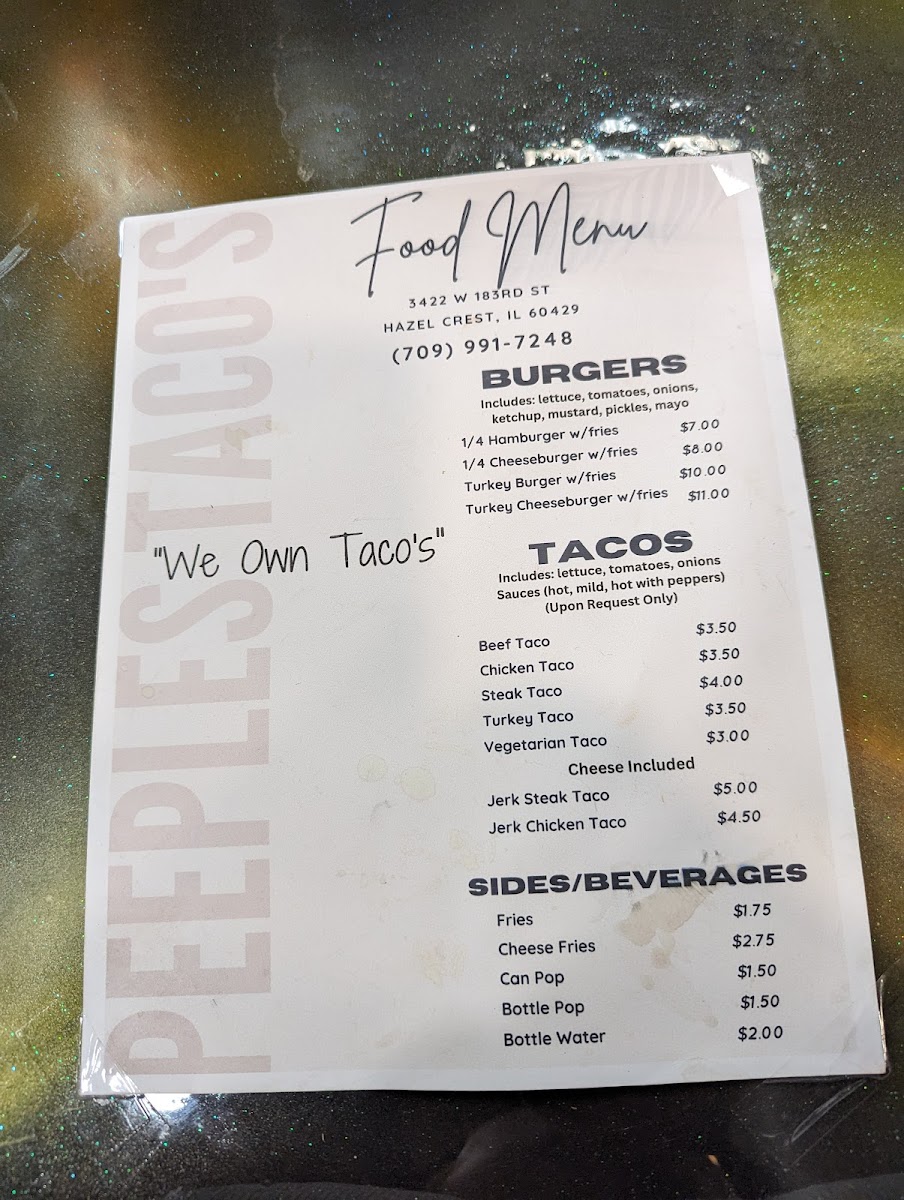 PEEPLES TACO'S
Food Menu
3422 W 183RD ST
HAZEL CREST, IL 60429
(709) 991-7248
"We Own Taco's"
BURGERS
Includes: lettuce, tomatoes, onions,
ketchup, mustard, pickles, mayo
1/4 Hamburger w/fries $7.00
1/4 Cheeseburger w/fries $8.00
Turkey Burger w/fries $10.00
Turkey Cheeseburger w/fries $11.00
TACOS
Includes: lettuce, tomatoes, onions
Sauces (hot, mild, hot with peppers)
(Upon Request Only)
Beef Taco $3.50
Chicken Taco $3.50
Steak Taco $4.00
Turkey Taco $3.50
Vegetarian Taco $3.00
Cheese Included
Jerk Steak Taco $5.00
Jerk Chicken Taco $4.50
SIDES/BEVERAGES
Fries $1.75
Cheese Fries $2.75
Can Pop $1.50
Bottle Pop $1.50
Bottle Water $2.00